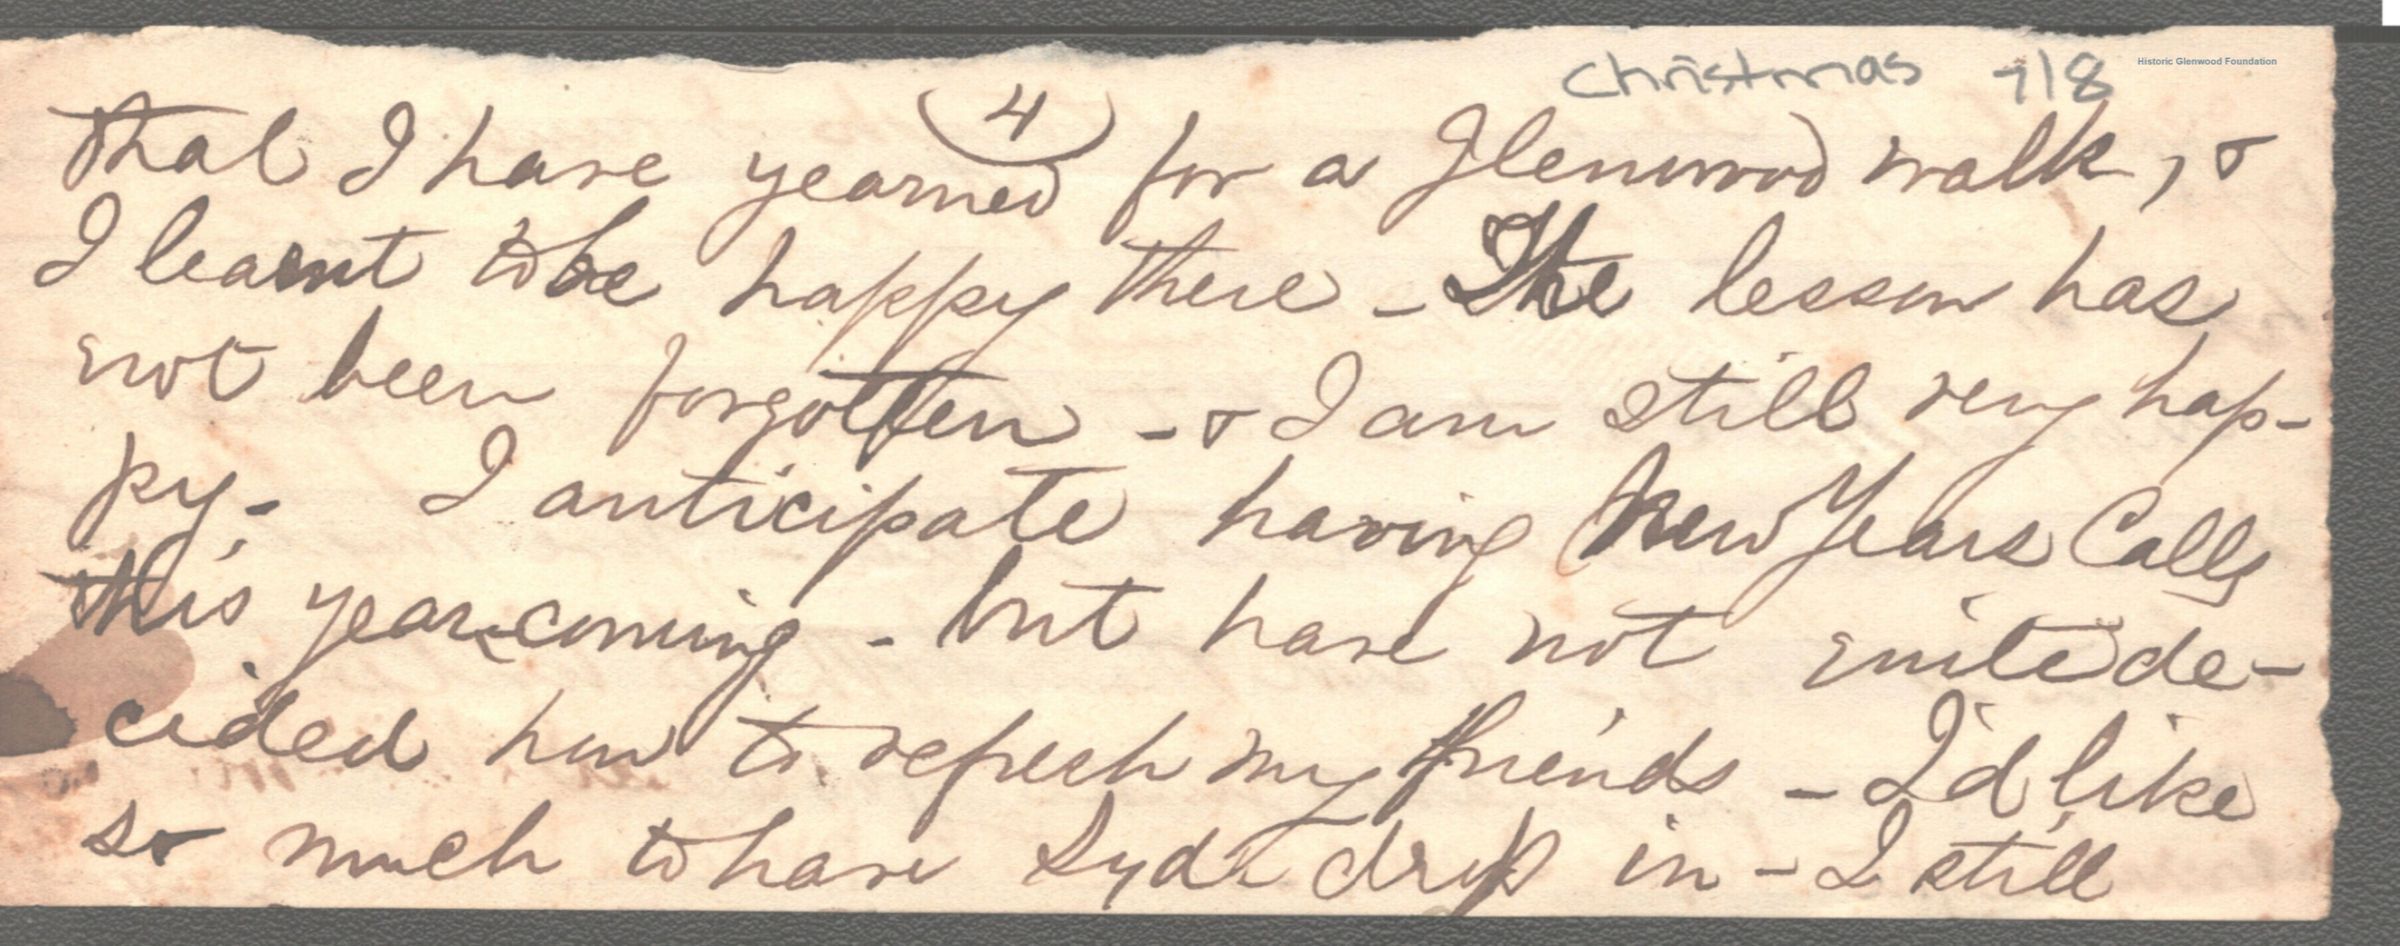 Christmas 7/8 Historic Glenwood Foundation
(4)
that I have yearned for a Glenwood walk, &
I learnt to be happy there - The lesson has
not been forgotten - & I am still very hap-
py - I anticipate having New Years Calls
this year coming - but have not quite de-
cided how to refresh my friends - I'd like
so much to have drop in - I still